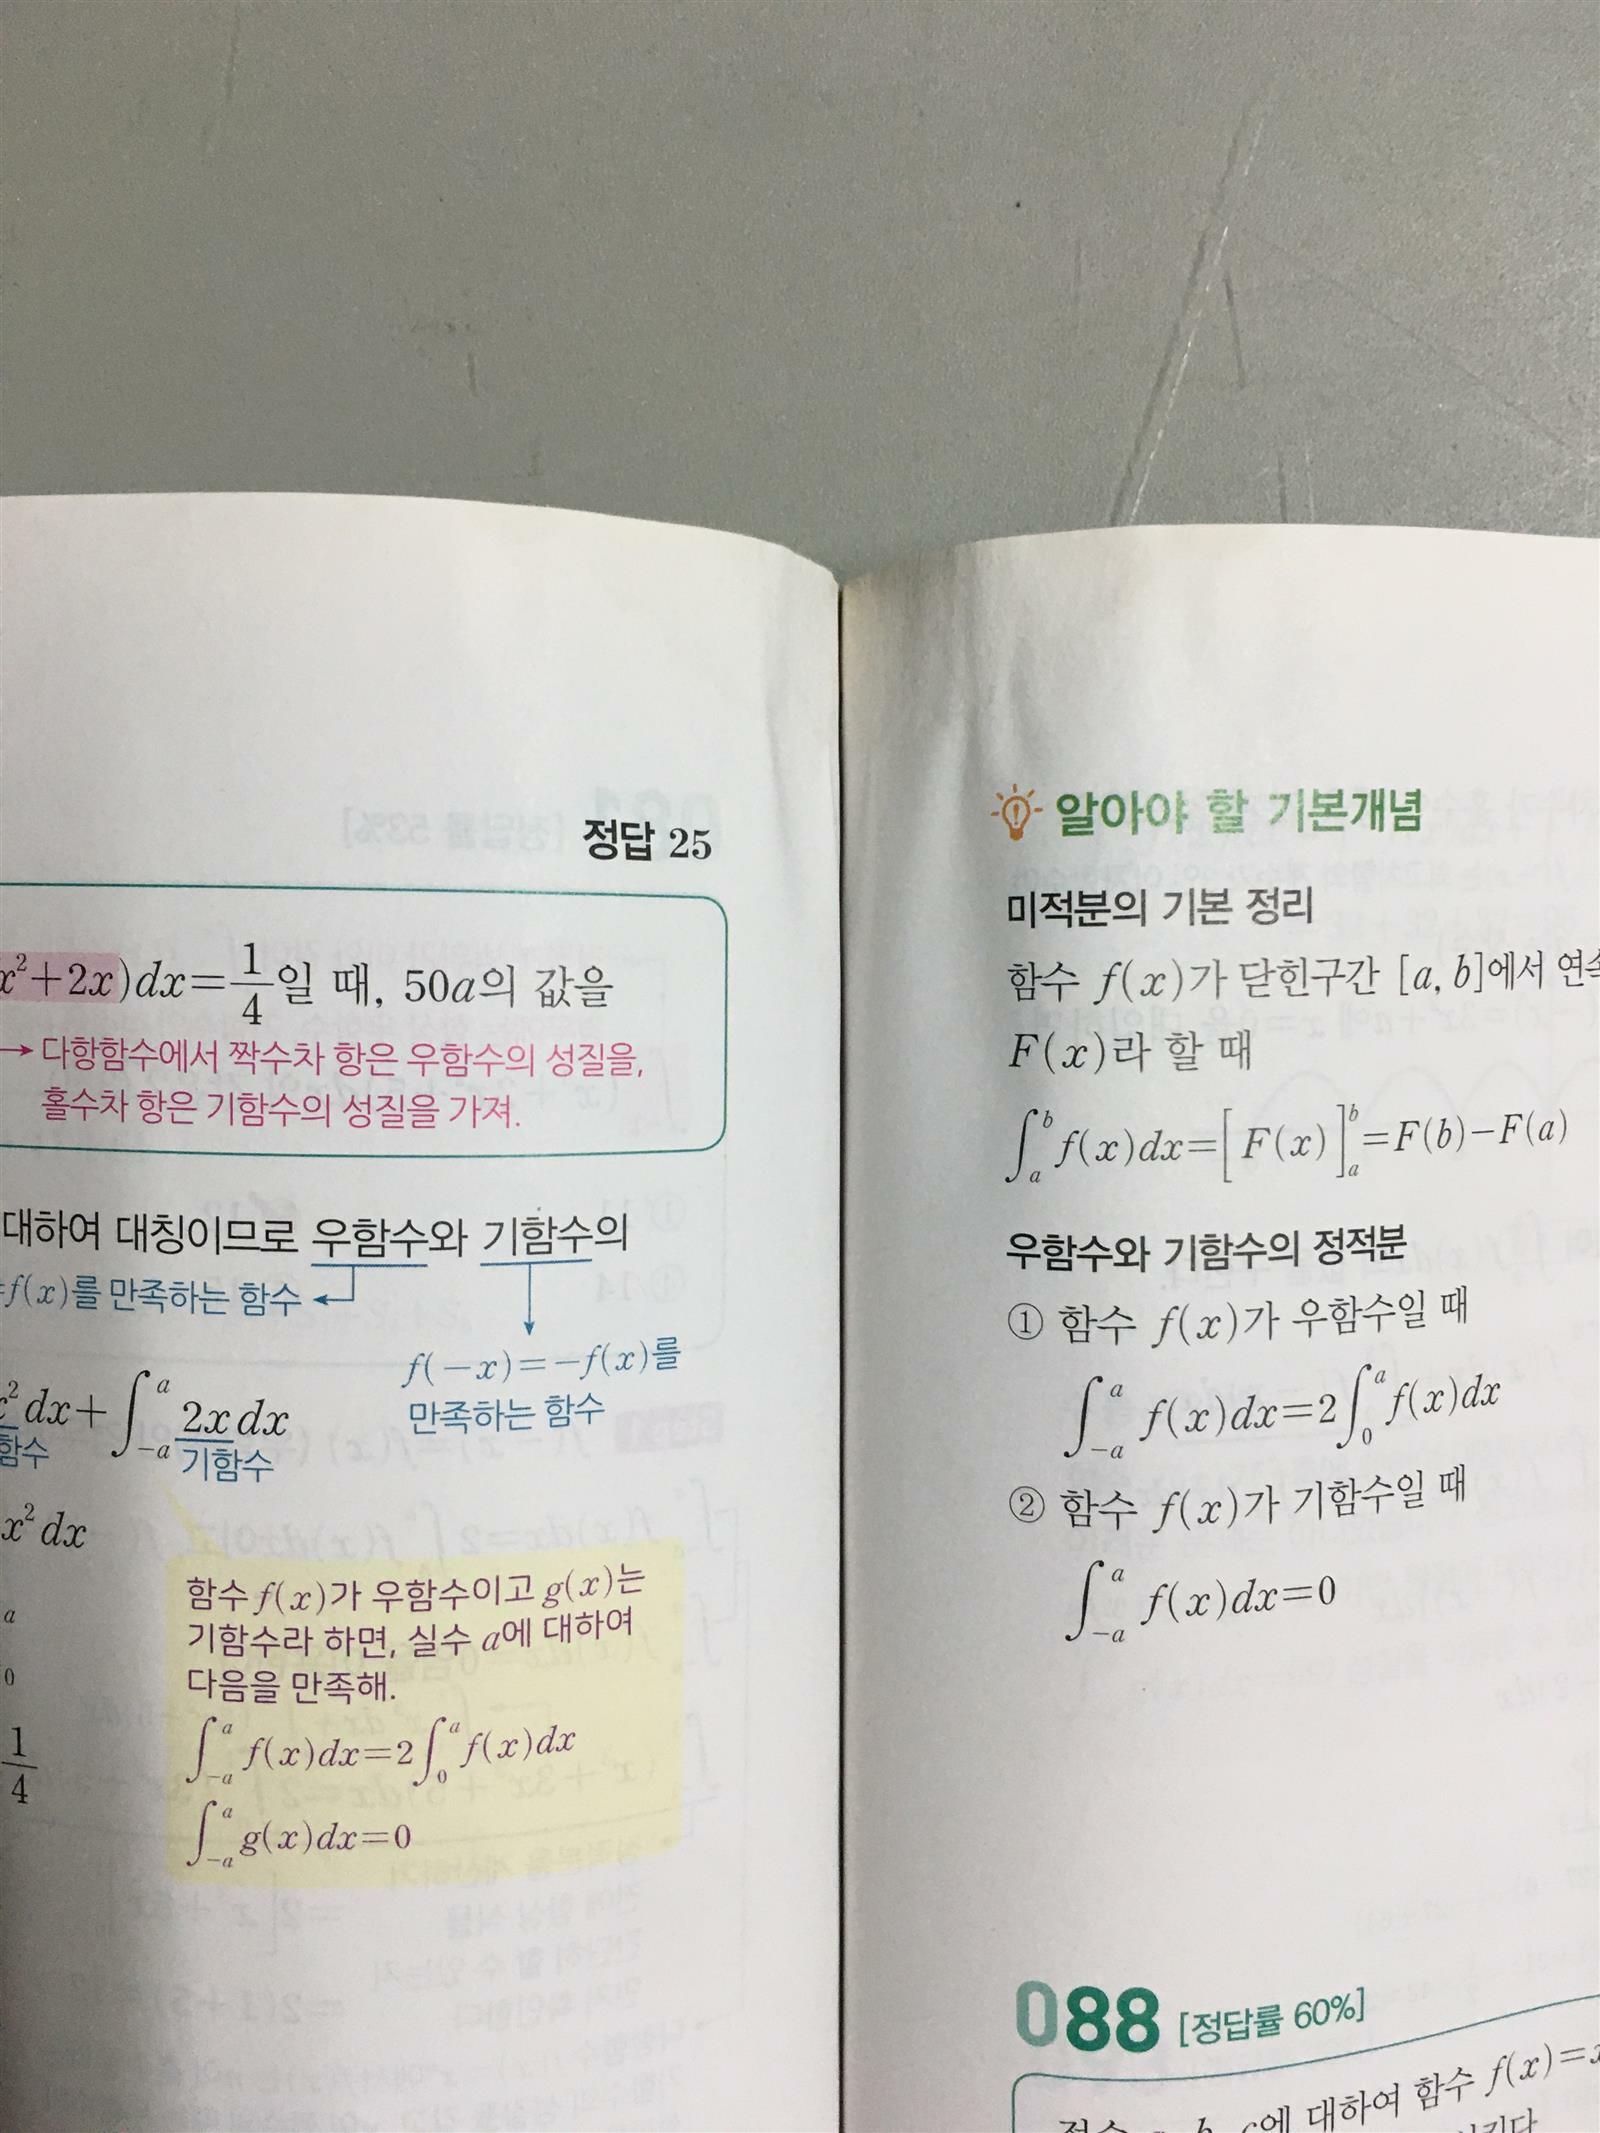 정답 25
x²+2x)dx=1/4일 때, 50a의 값을
→ 다항함수에서 짝수차 항은 우함수의 성질을,
홀수차 항은 기함수의 성질을 가져.
대하여 대칭이므로 우함수와 기함수의
f(x)를 만족하는 함수
f(-x)=-f(x)를
만족하는 함수
x² dx+∫_{-a}^{a} 2x dx
함수 기함수
x² dx
a
0
1/4
함수 f(x)가 우함수이고 g(x)는
기함수라 하면, 실수 a에 대하여
다음을 만족해.
∫_{-a}^{a} f(x)dx=2∫_{0}^{a} f(x)dx
∫_{-a}^{a} g(x)dx=0
알아야 할 기본개념
미적분의 기본 정리
함수 f(x)가 닫힌구간 [a, b]에서 연속
F(x)라 할 때
∫_{a}^{b} f(x)dx=[F(x)]_{a}^{b}=F(b)-F(a)
우함수와 기함수의 정적분
① 함수 f(x)가 우함수일 때
∫_{-a}^{a} f(x)dx=2∫_{0}^{a} f(x)dx
② 함수 f(x)가 기함수일 때
∫_{-a}^{a} f(x)dx=0
088 [정답률 60%]
b, c에 대하여 함수 f(x)=x